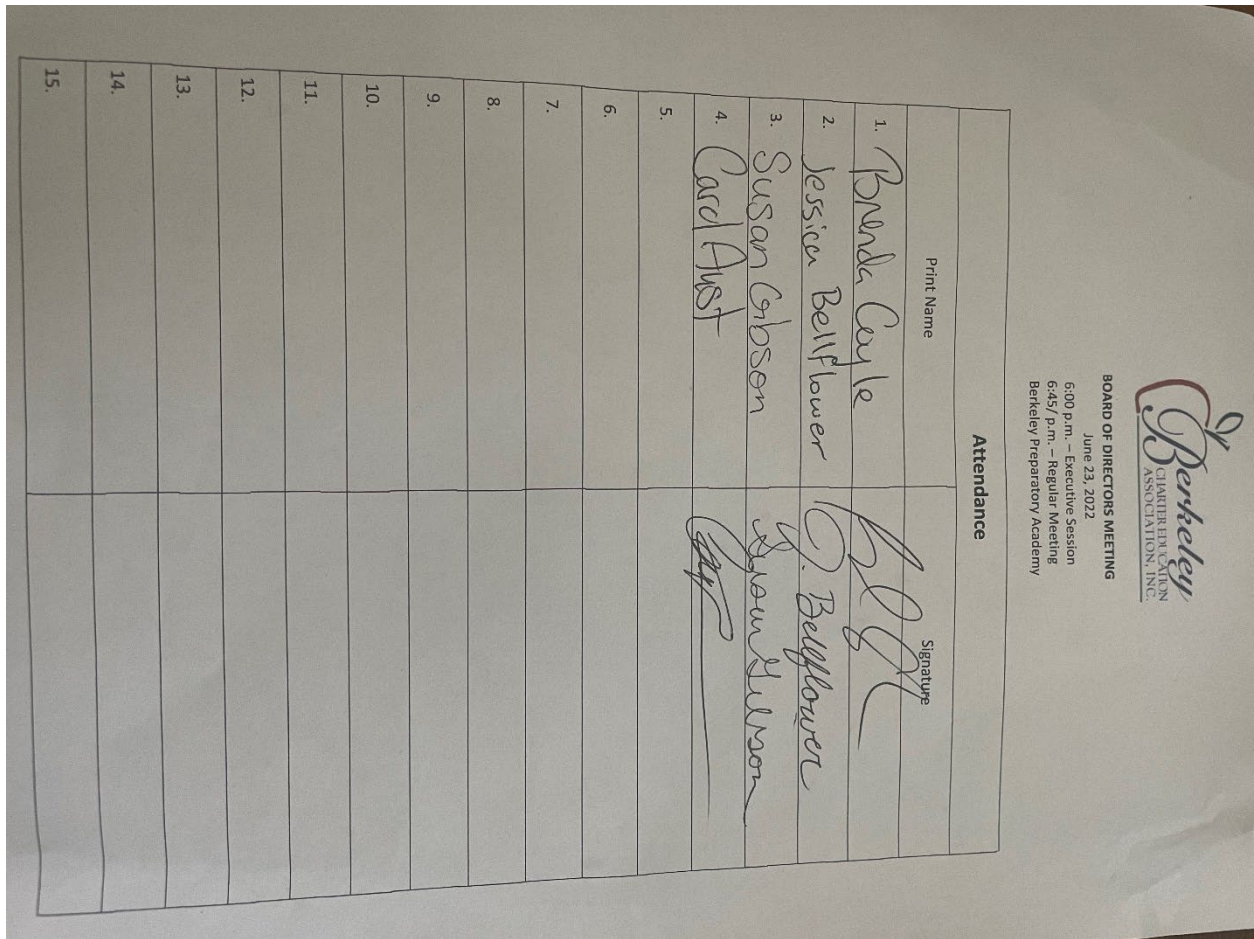 Berkeley
CHARTER EDUCATION
ASSOCIATION, INC.
BOARD OF DIRECTORS MEETING
June 23, 2022
6:00 p.m. – Executive Session
6:45/ p.m. – Regular Meeting
Berkeley Preparatory Academy
Attendance
Print Name Signature
1. Brenda Cayle
2. Jessica Bellflower J. Bellflower
3. Susan Gibson Susan Gibson
4. Carol Aust
5.
6.
7.
8.
9.
10.
11.
12.
13.
14.
15.